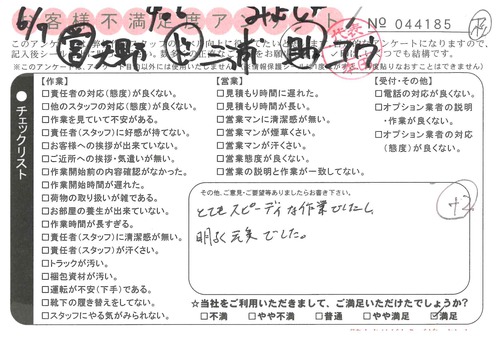 客様不満足度ア
№ 044185
記入後シー
チェックリスト
【作業】
□責任者の対応(態度)が良くない。
□他のスタッフの対応(態度)が良くない。
□作業を見ていて不安がある。
□責任者(スタッフ)に好感が持てない。
□お客様への挨拶が出来ていない。
□ご近所への挨拶・気遣いが無い。
□作業開始前の内容確認がなかった。
□作業開始時間が遅れた。
□荷物の取り扱いが雑である。
□お部屋の養生が出来ていない。
□作業時間が長すぎる。
□責任者(スタッフ)に清潔感が無い。
□責任者(スタッフ)が汗くさい。
□トラックが汚い。
□梱包資材が汚い。
□運転が不安(下手)である。
□靴下の履き替えをしてない。
□スタッフにやる気がみられない。
【営業】
□見積もり時間に遅れた。
□見積もり時間が長い。
□営業マンに清潔感が無い。
□営業マンが煙草くさい。
□営業マンが汗くさい。
□営業態度が良くない。
□営業の説明と作業が一致してない。
【受付・その他】
□電話の対応が良くない。
□オプション業者の説明
・作業が良くない。
□オプション業者の対応
(態度)が良くない。
その他、ご意見・ご要望等ありましたらお書き下さい。
とてもスピーディな作業でしたし
明るく元気でした。
+2
☆当社をご利用いただきまして、ご満足いただけたでしょうか?
□不満 □やや不満 □普通 □やや満足 ☑満足